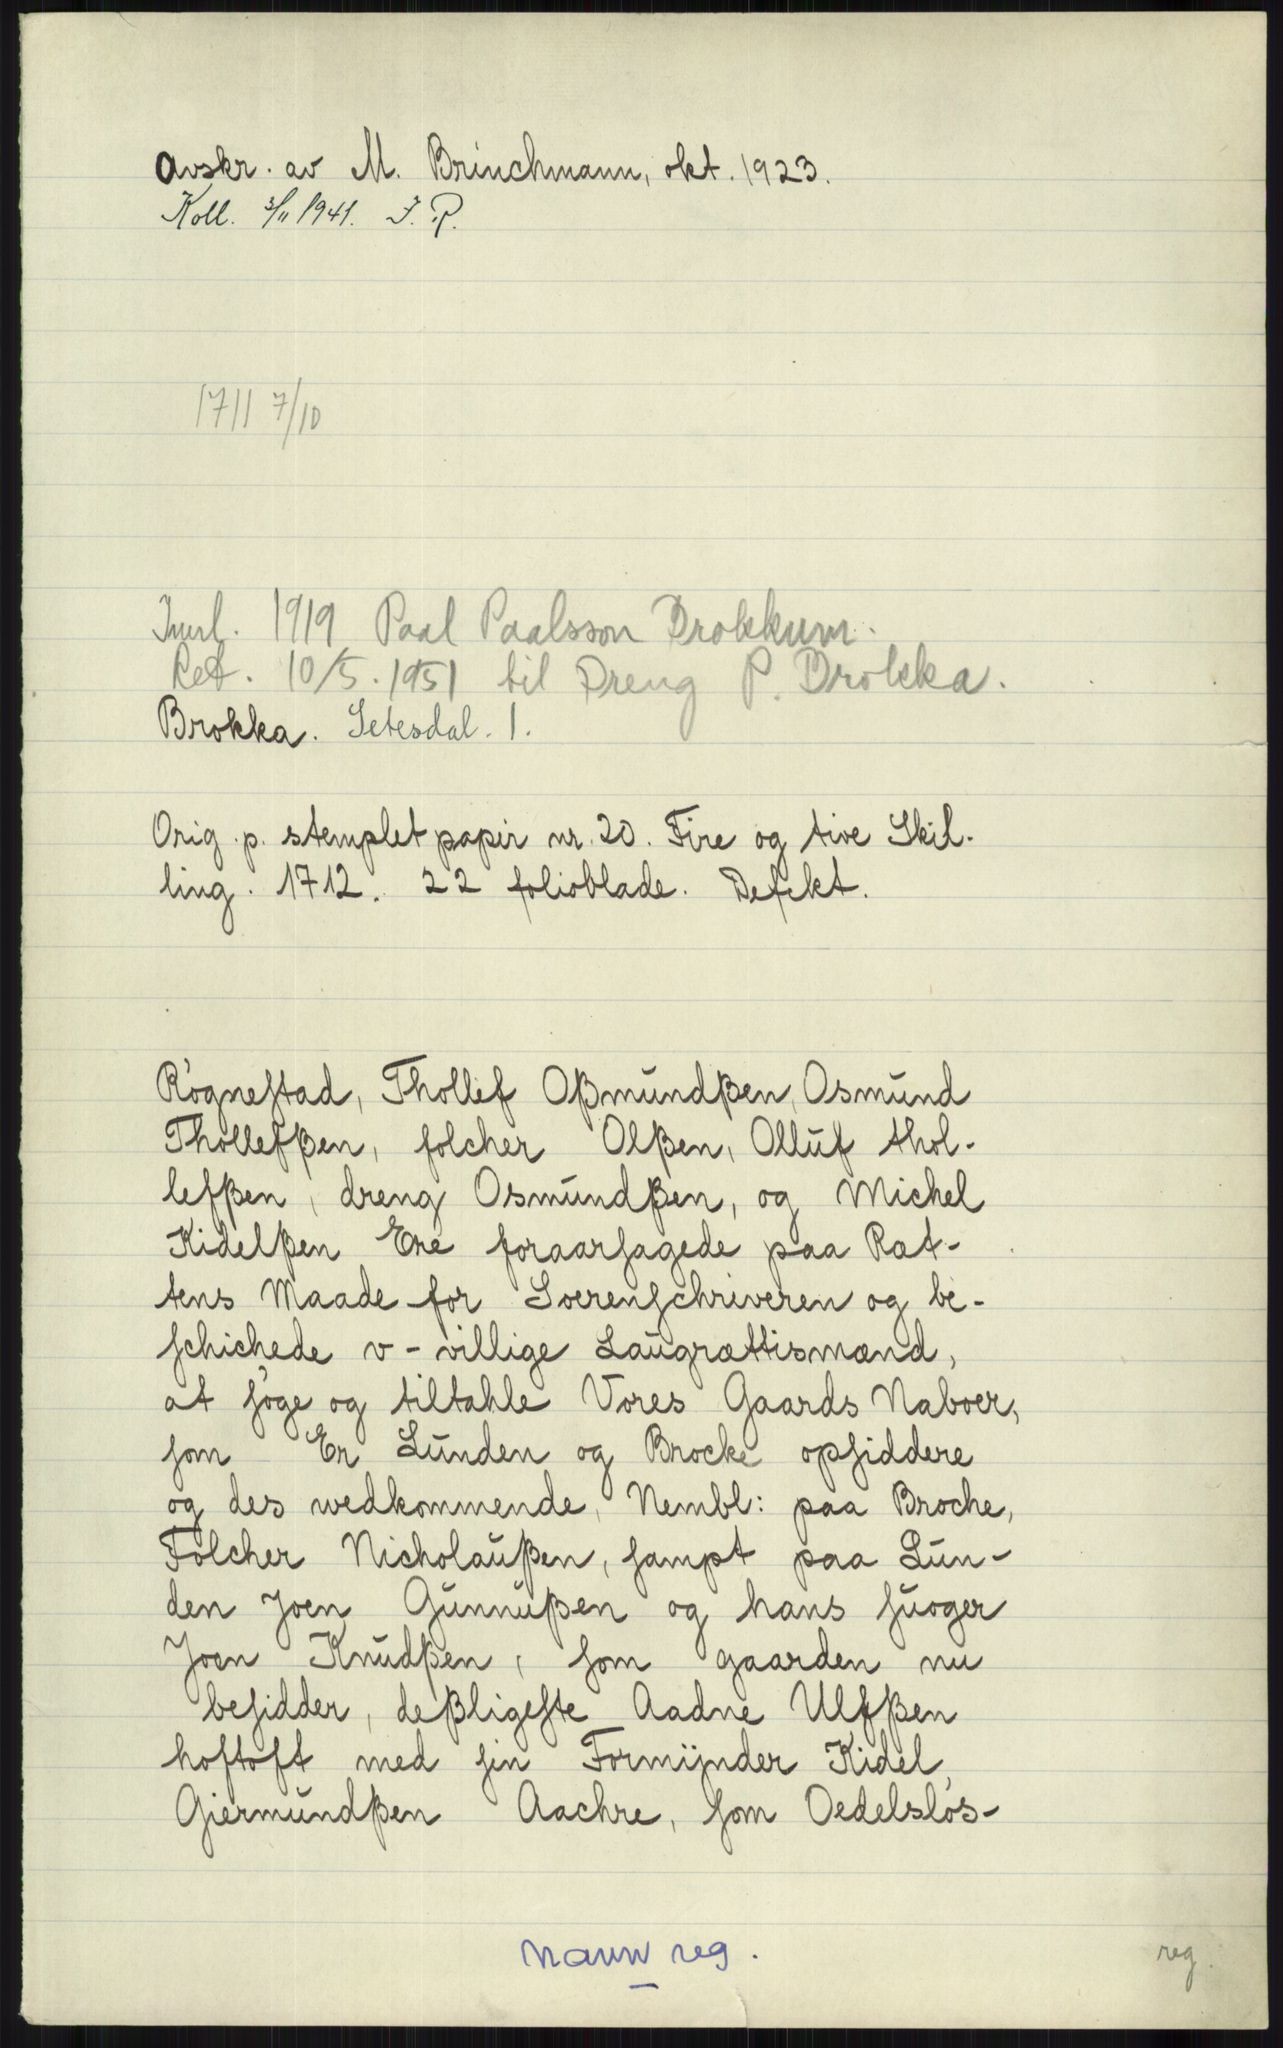 Avskr. av M. Brinchmann, okt. 1923.
Koll. 3/11 1941. J. P.
1711 7/10
Innl. 1919 Paal Paalsson Brokkum.
Ret. 10/5. 1951 til Dreng P. Brokka.
Brokka. Setesdal. 1.
Orig. p. stemplet papir nr. 20. Fire og tive Skil-
ling. 1712. 22 folioblade. Defekt.
Røgnestad, Thollef Oßmundßen, Osmund
Thollefßen, folcher Olßen, Olluf thol-
lefßen, dreng Osmundßen, og Michel
Kidelßen Ere foraarsagede paa Ræt-
tens Maade for Soerenschriveren og be-
schichede v-villige Laugrættismænd,
at søge og tiltahle Vores Gaards Naboer,
som Er Lunden og Brocke opsiddere
og des wedkommende, Nembl: paa Broche,
Folcher Nicholaußen, sampt paa Lun-
den Joen Gunnußen og hans suoger
Joen Knudßen, som gaarden nu
besidder, deßligeste Aadne Ulfßen
hoftoft med sin Formÿnder Kidel
Giermundßen Aachre, som Oedelsløs-
navn reg.
reg.